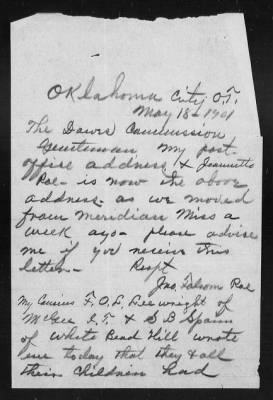 Oklahoma City O.T.
May 18th 1901
The Daws Commission
Gentleman My post-
office address & Jeannette
Poe - is now the above
address. as we moved
from Meridian Miss a
week ago - please advise
me if you receive this
letter -
Respt
Jno. Folsom Poe
My Cousins F. O. L. wright of
McGee I.T. & S B Spann
of White Bead Hill wrote
me today that they & all
their Children had